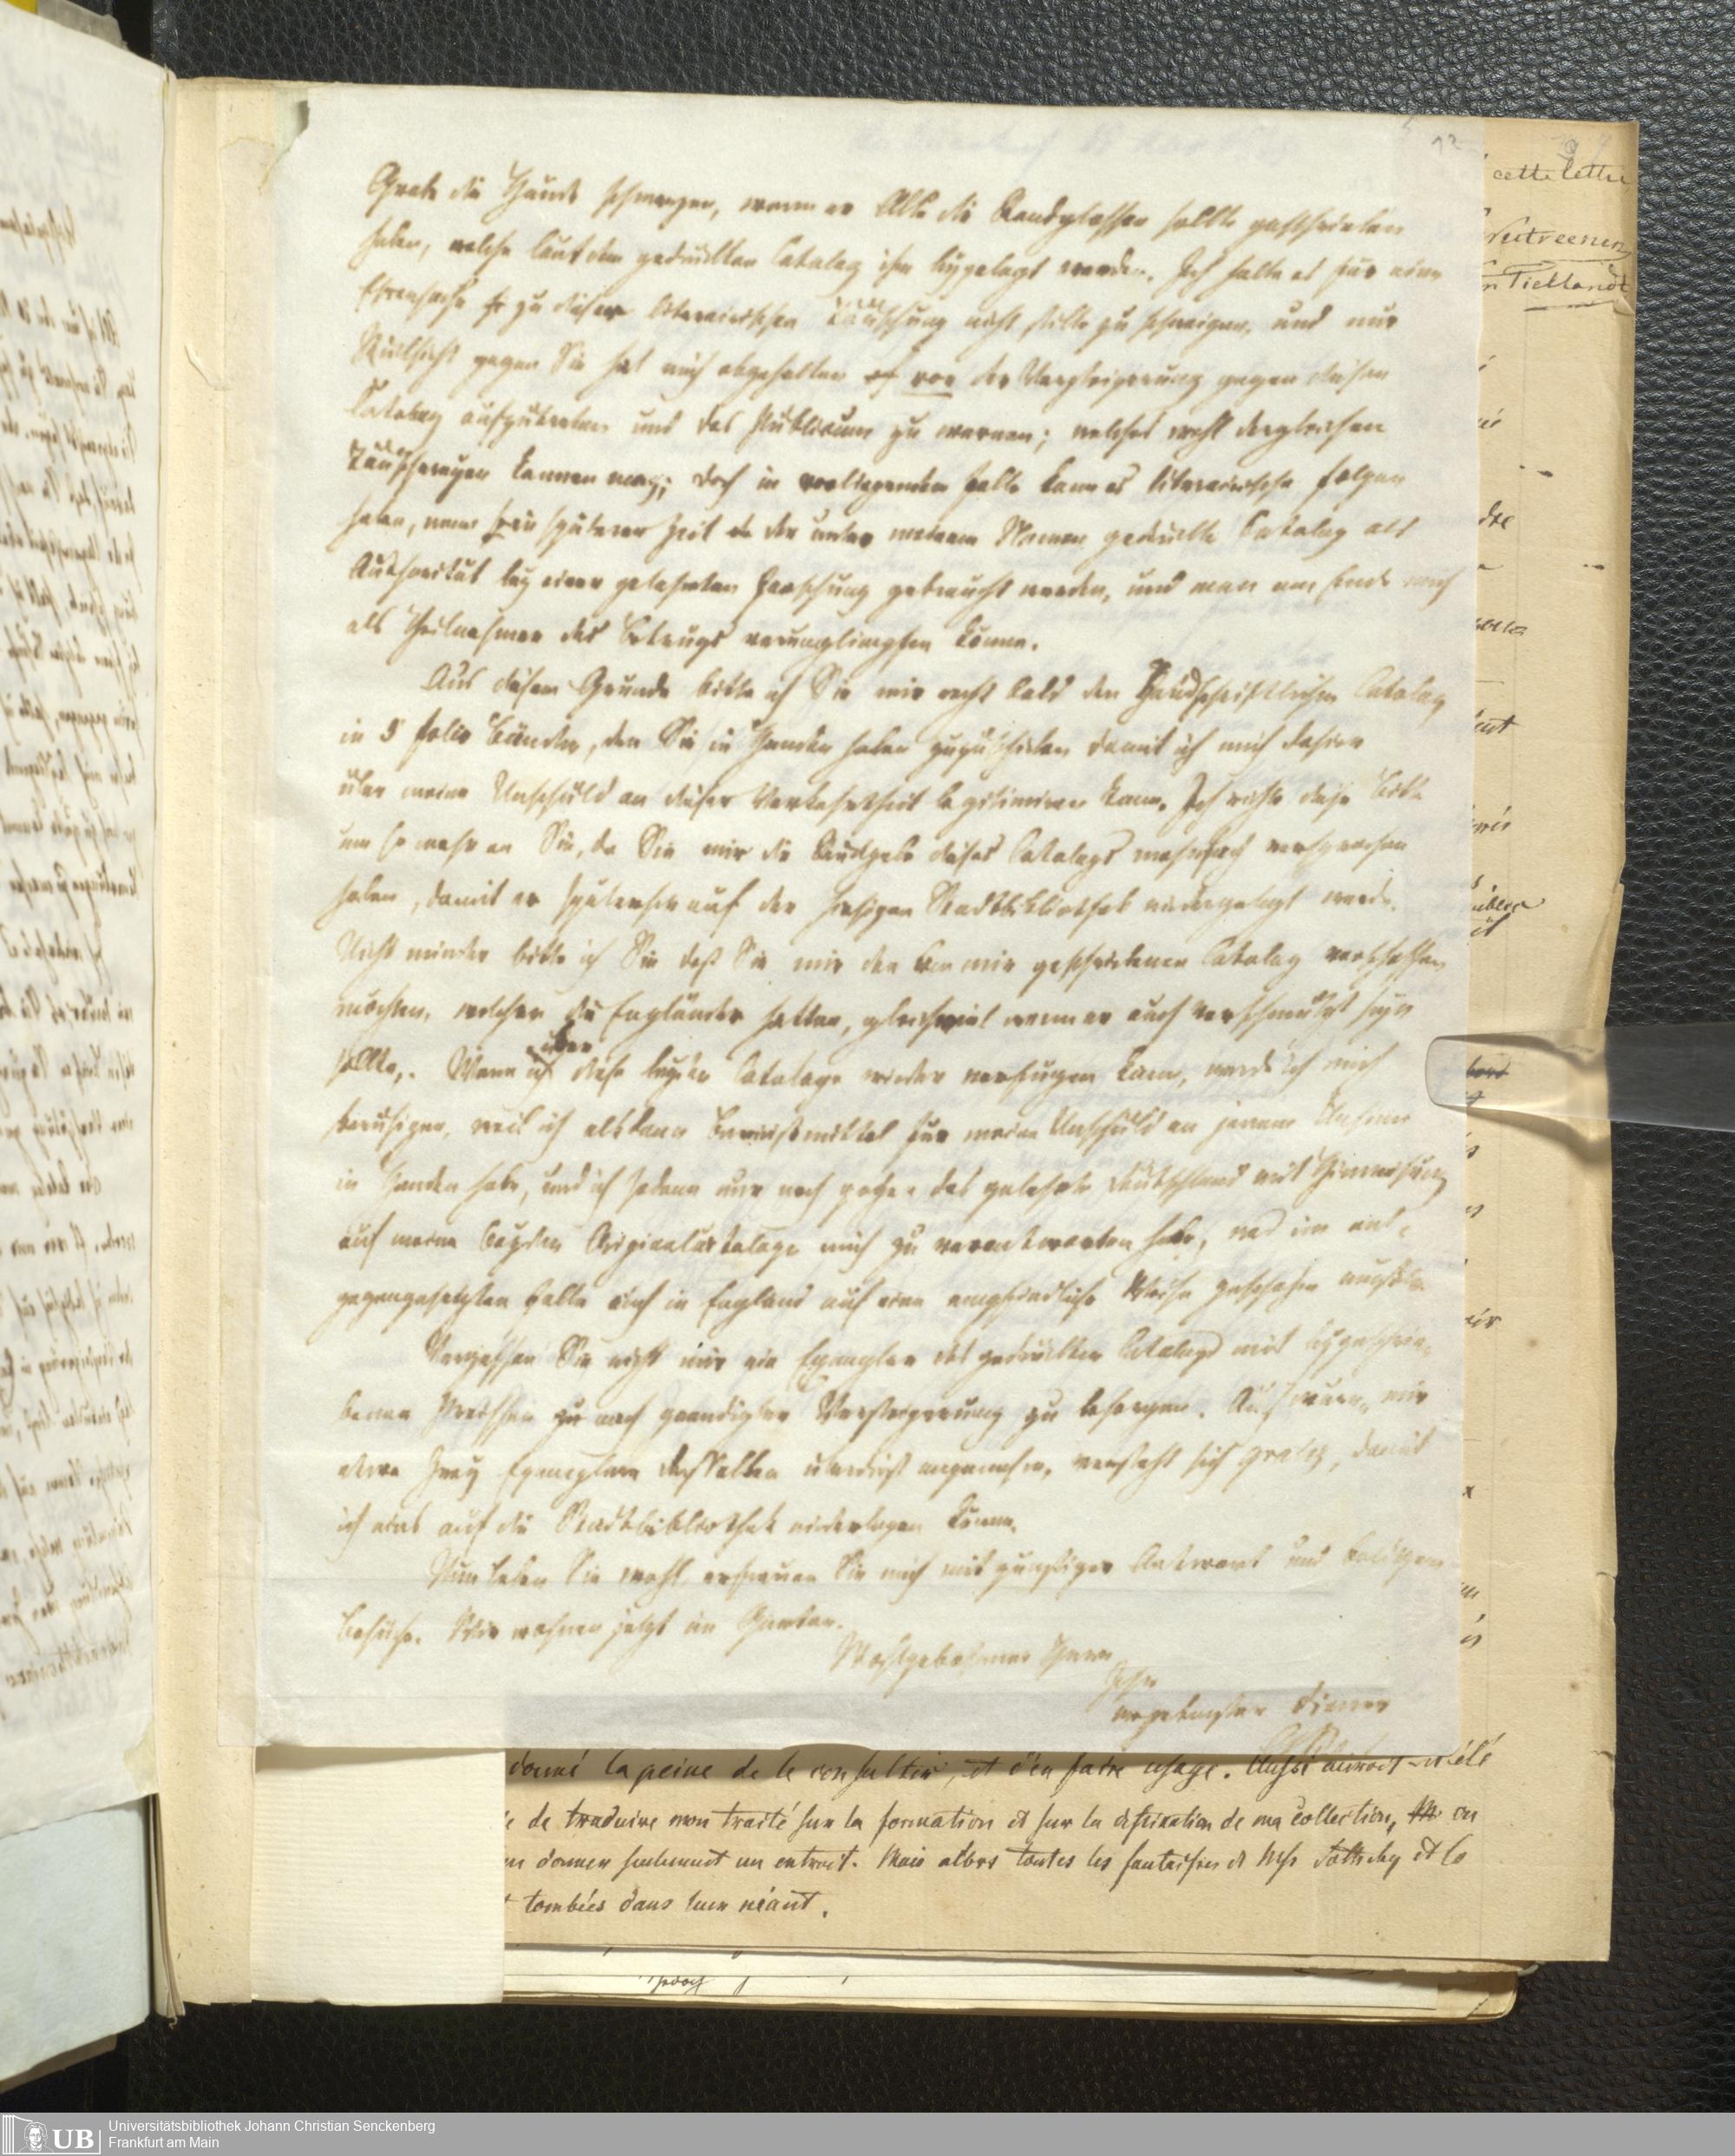 92
Grabe die Hände schmerzen, wenn er Alle die Randglossen sollte geschrieben
haben, welche laut dem gedruckten Catalog ihm beygelegt werden. Ich halte es für eine
Ehrensache zu dieser literarischen Täuschung nicht stille zu schweigen, und nur
Rücksicht gegen Sie hat mich abgehalten vor der Versteigerung gegen diesen
Catalog aufzutreten und das Publicum zu warnen; welches wohl dergleichen
Täuschungen kennen mag; doch in vorliegendem Falle kann es literarische Folgen
haben, wenn in späterer Zeit der unter meinem Namen gedruckte Catalog als
Authorität bey einer gelehrten Forschung gebraucht werden, und man am Ende mich
als Theilnehmer des Betrugs verunglimpfen könne.
Aus diesem Grunde bitte ich Sie mir recht bald den Handschriftlichen Catalog
in 5 folio Bänden, den Sie in Handen haben zuzuschicken damit ich mich
über meine Unschuld an dieser Verkehrtheit legitimiren kann. Ich richte diese Bitte
um so mehr an Sie, da Sie mir die Rückgabe dieses Catalogs mehrfach versprochen
haben, damit er späterhin auf der hiesigen Stadtbibliothek niedergelegt werde.
Nicht minder bitte ich Sie daß Sie mir den von mir geschriebenen Catalog verschaffen
möchten, welchen die Engländer hatten, gleichviel wenn er auch verschmutzt seyn
sollte. Wenn ich über diese beyde Cataloge wieder verfügen kann, werde ich mich
beruhigen, weil ich alsdann Beweißmittel für meine Unschuld an jenem
in Handen habe, und ich sodann nur noch gegen das gelehrte Deutschland mit Hinweisung
auf meine beyden Originalcataloge mich zu verantworten habe, was im ent-
gegengesetzten Falle auch in England auf eine empfindliche Weise geschehen müßte.
Vergessen Sie nicht mir ein Exemplar des gedruckten Catalogs mit beygeschrie-
benen Preißen nach geendigter Versteigerung zu besorgen. Auch wären mir
etwa zwey Exemplare desselben überdieß angenehm, versteht sich gratis, damit
ich eines auf die Stadtbibliothek niederlegen könne.
Nun leben Sie wohl, erfreuen Sie mich mit günstiger Antwort und baldigem
Besuche. Wir wohnen jetzt im Garten.
Wohlgebohrner Herr
Ihr
ergebenster Diener
cette lettre
Tiellandt
donné la peine de le consulter, et d'en faire usage. Aussi auroit-il été
de traduire mon traité sur la formation et sur la destination de ma collection, ou
en donner seulement un extrait. Mais alors toutes les fantaisies de Mrs Sotheby et Co
tombées dans leur néant.
UB
Universitätsbibliothek Johann Christian Senckenberg
Frankfurt am Main